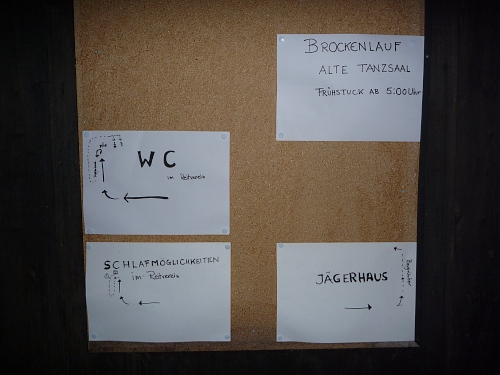 BROCKENLAUF
ALTE TANZSAAL
FRÜHSTÜCK AB 5:00 Uhr
WC
im Reitverein
SCHLAFMÖGLICHKEITEN
im Reitverein
JÄGERHAUS